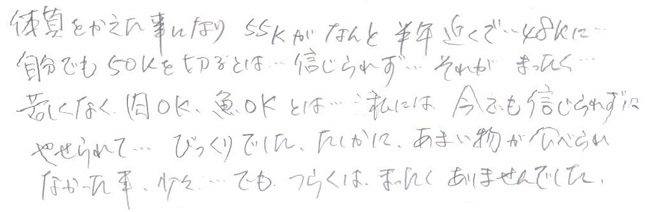 体質をかえた事になり 55Kがなんと 半年近くで…48Kに…
自分でも50Kを切るとは…信じられず… それが まったく…
苦しくなく、肉OK、魚OK とは… 私には 今でも信じられずに
やせられて… びっくりでした、たしかに、あまい物が食べられ
なかった事、少々…でも つらくは まったく ありませんでした。